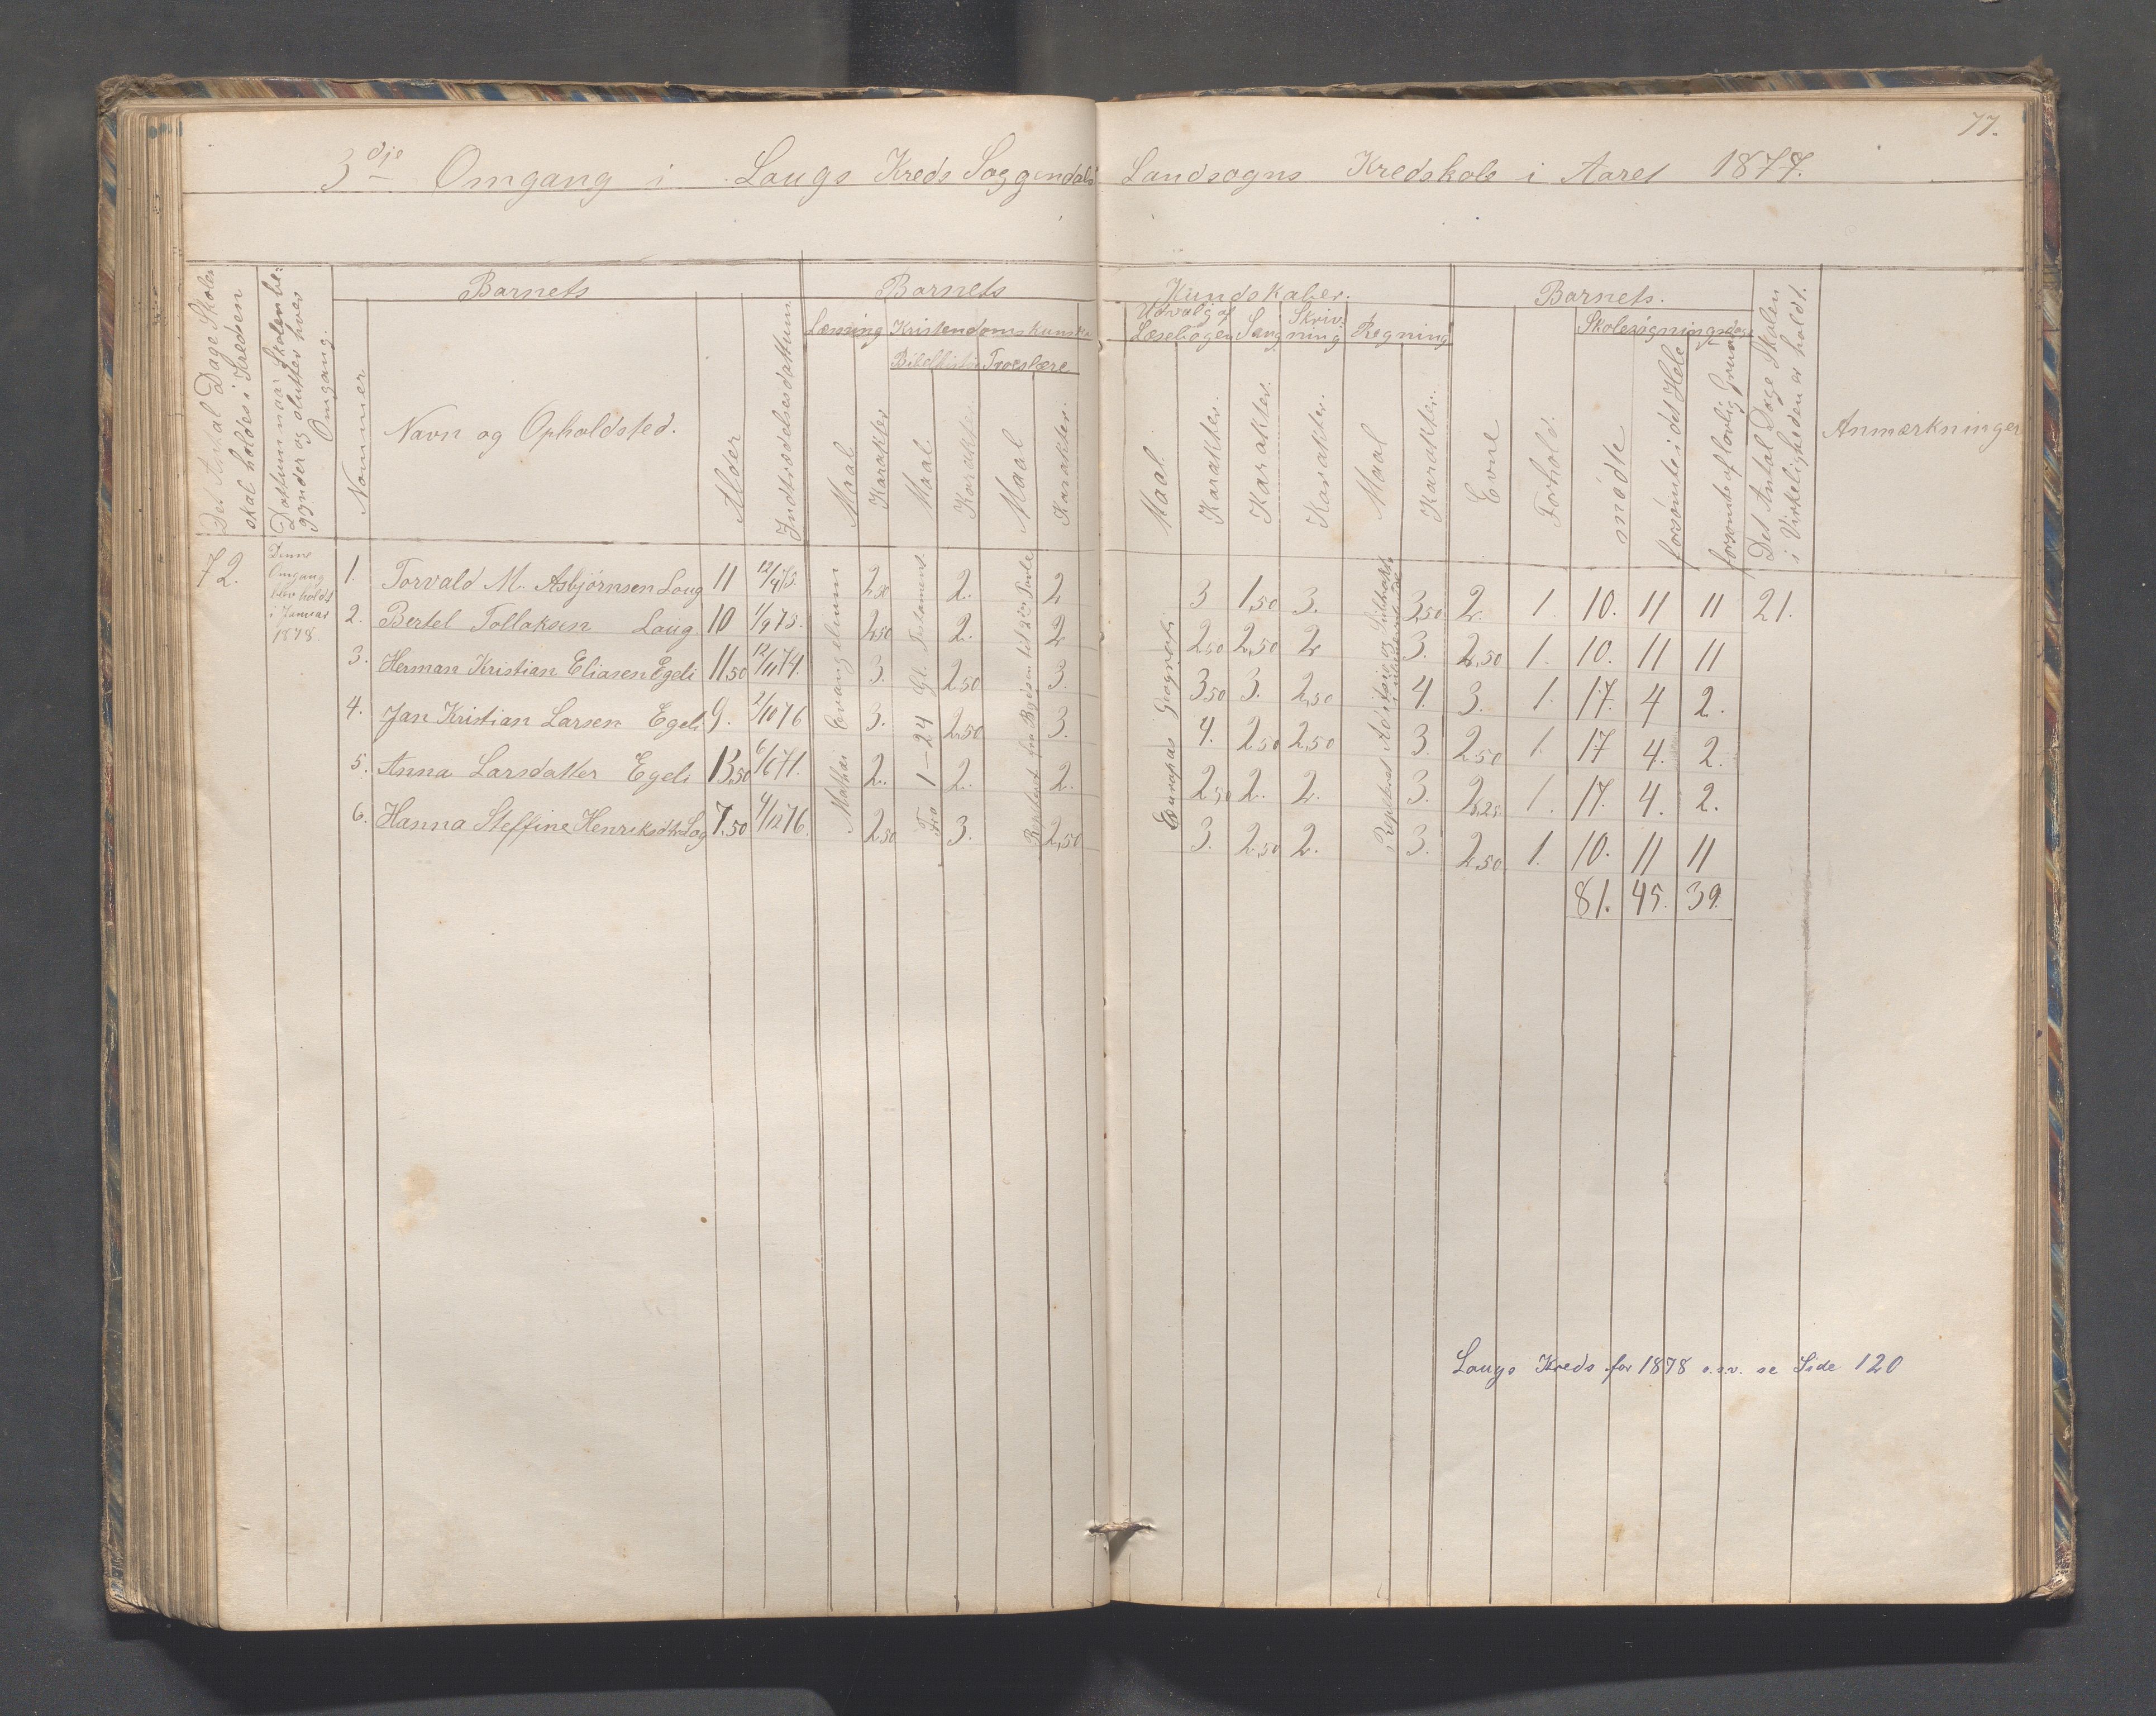 77.
3dje Omgang i Laugs Kreds Soggendals Landsogns Kredskole i Aaret 1877.
Det Antal Dage Skolen skal holdes i Kredsen
Datum naar Skolen begynder og slutter hver Omgang.
Barnets
Nommer
Navn og Opholdsted.
Alder
Indtrædelsesdatum
Barnets Kundskaber.
Læsning
Maal
Karakter
Kristendomskundskab
Bibelhistorie
Maal
Karakter.
Troeslære
Maal
Karakter.
Udvalg af Læsebogen
Maal
Karakter.
Sang
Karakter.
Skrivning
Karakter.
Regning
Maal
Karakter.
Barnets.
Evne
Forhold.
Skolesøgningsdage
mødte
forsømte i det Hele
forsømte af lovlig Grund
Det Antal Dage Skolen i Virkeligheden er holdt.
Anmærkninger
72.
Denne
Omgang
blev holdt
i Januar
1878.
1. Torvald M. Asbjørnsen Loug 11 12/4 73. 2,50 2. 2 3 1,50 3. 3,50 2. 1. 10. 11 11 21.
2. Bertel Tollaksen Laug 10 1/9 75. 2,50 2. 2 2,50 2,50 2 3. 2,50 1. 10. 11 11
3. Herman Kristian Eliasen Egeli 11,50 12/11 74. 3. 2,50 3. 3,50 3. 2,50 4. 3. 1. 17. 4 2.
4. Jan Kristian Larsen Egeli 9. 2/10 76 3. 2,50 3. 4. 2,50 2,50 3. 2,50 1. 17 4. 2.
5. Anna Larsdatter Egeli 13,50 6/6 71. 2. 2. 2. 2,50 2. 2. 3. 2,25 1. 17. 4. 2.
6. Hanna Steffine Henriksdtr Log 7,50 4/12 76. 2,50 3. 2,50 3. 2,50 2. 3. 2,50 1. 10. 11 11
81. 45. 39.
Mathæi Evangelium
Fra 1–24 Gl. Testament
Europas Geografi
Laugs Kreds for 1878 o.s.v. se Side 120